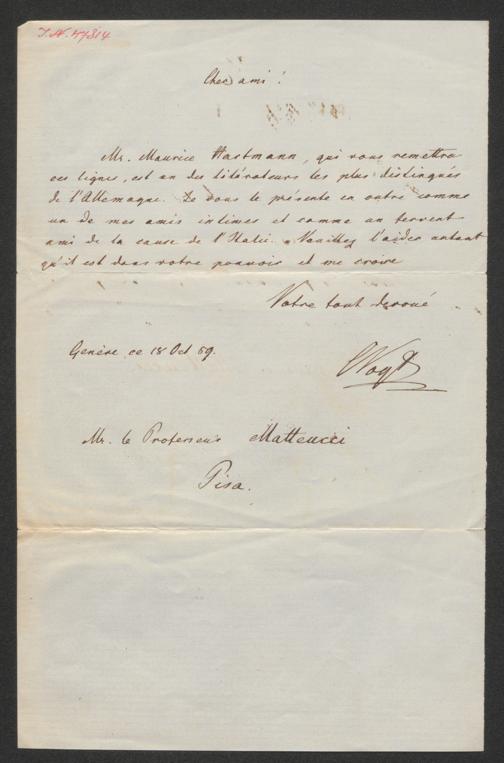 J.N. 47814
Cher ami!
Mr. Maurice Hartmann, qui vous remettra
ces lignes, est un des litérateurs les plus distingués
de l'Allemagne. Je vous le présente en outre comme
un de mes amis intimes et comme un fervent
ami de la cause de l'Italie. Veuillez l'aider autant
qu'il est dans votre pouvoir et me croire
Votre tout devoué
Genève ce 18 Oct 59.
CVogt
Mr. le Professeur Matteucci
Pisa.